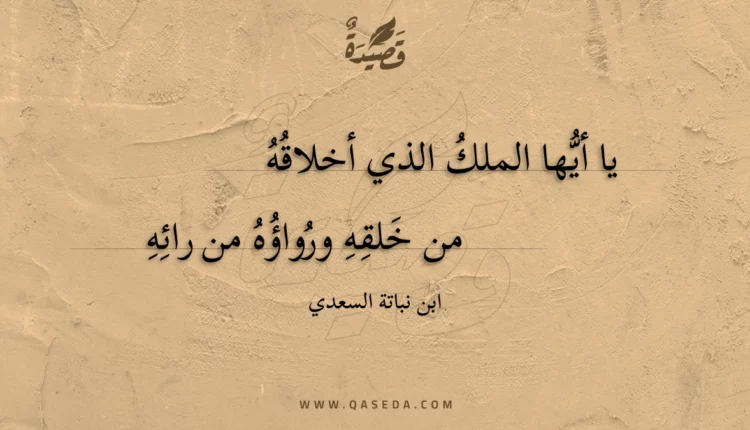 قَصِيْدَةٌ
يا أيُّها الملكُ الذي أخلاقُهُ
من خَلقِهِ ورُواؤُهُ من رائِهِ
ابن نباتة السعدي
WWW.QASEDA.COM